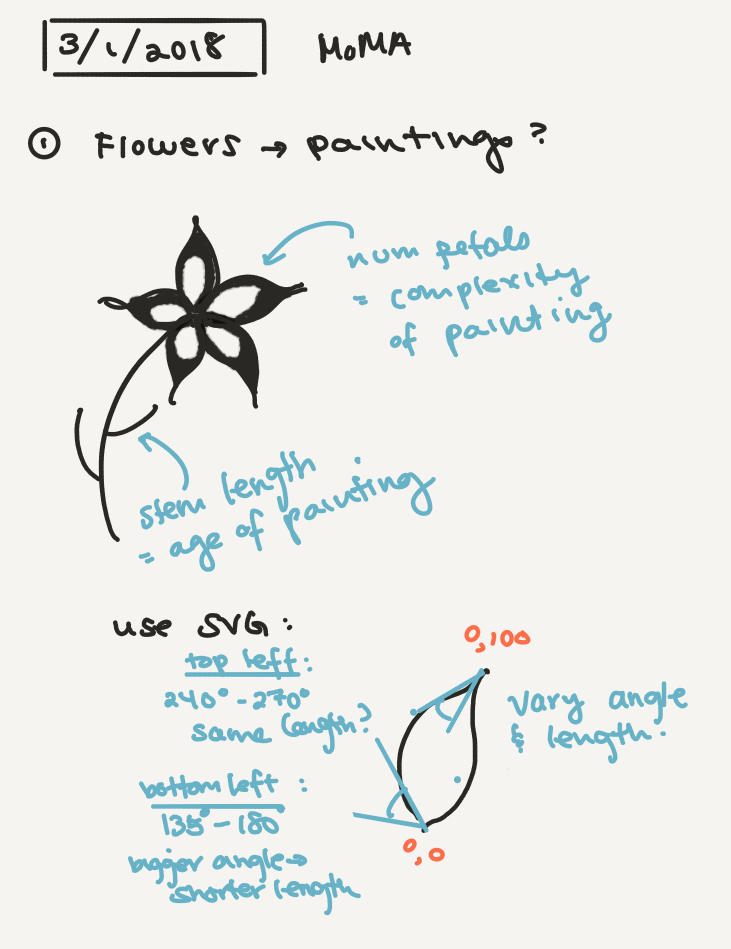 3/1/2018 MoMA
① Flowers → paintings?
num petals
= complexity
of painting
stem length
= age of painting
use SVG:
top left:
240° - 270°
same length?
bottom left:
135° - 180
bigger angle →
shorter length
0,100
vary angle
& length.
0,0